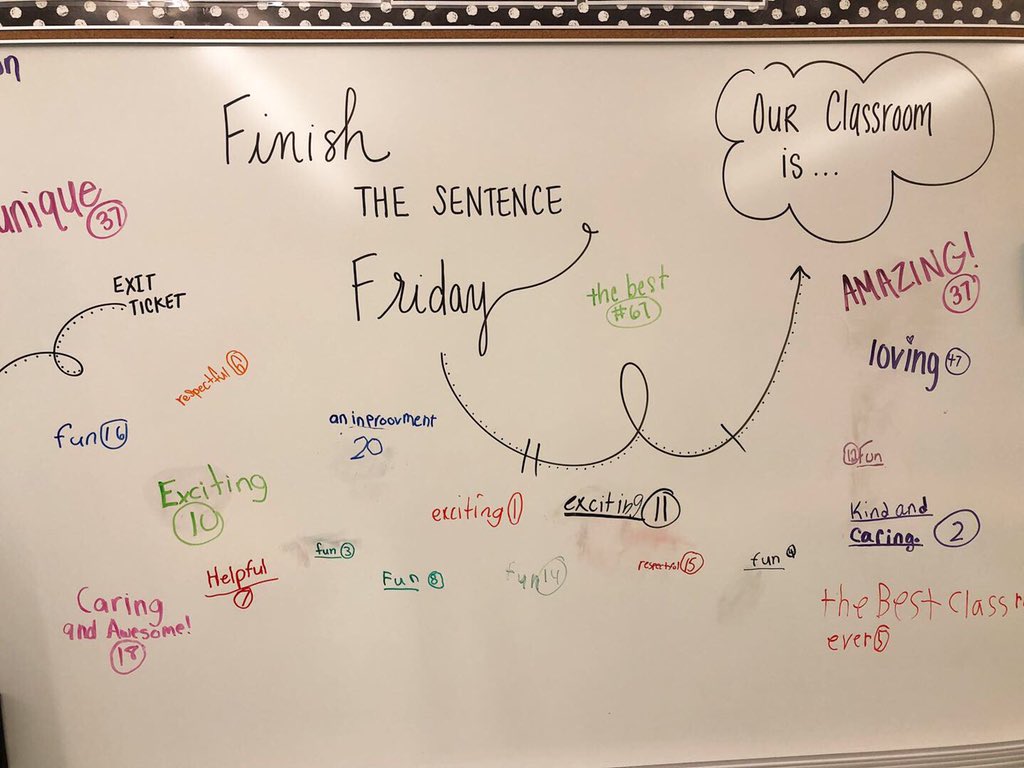 on
Finish
THE SENTENCE
Friday
OUR Classroom
is...
unique
37
EXIT
TICKET
the best
#67
AMAZING!
37
loving +7
respectful 6
fun 16
an inproovment
20
12 fun
Exciting
10
exciting 1
exciting 11
Kind and
Caring. 2
fun 3
Helpful
7
Fun 8
fun 14
respectful 15
fun 4
Caring
and Awesome!
18
the Best Classr
ever 5